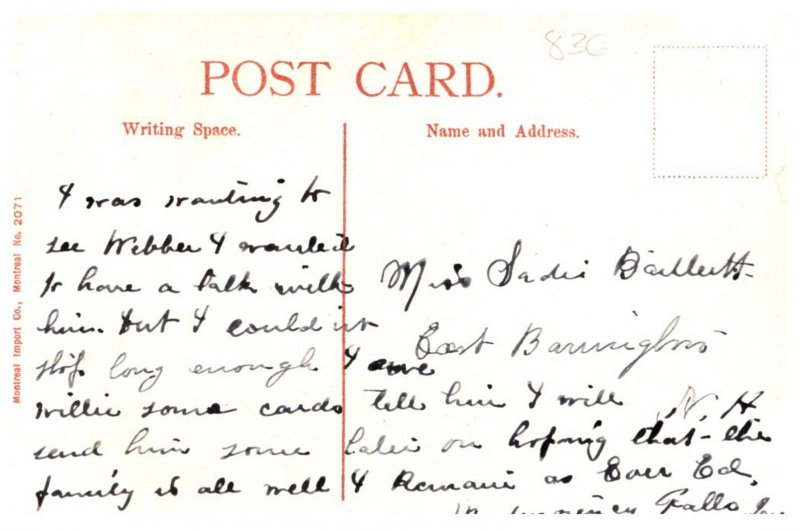 836
POST CARD.
Writing Space.
Name and Address.
Montreal Import Co., Montreal No. 2071
I was wanting to
see Webber I wanted
to have a talk with
him. but I could nt
stop long enough I owe
willie some cards tell him I will
send him some later on hoping that the
family is all well I Remain as Ever Ed.
Falls
Miss Sadie Bartlett
East Barrington
N. H